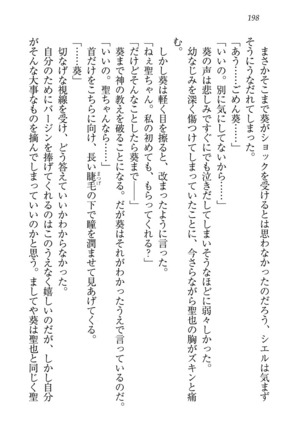 198
まさかそこまで葵がショックを受けるとは思わなかったのだろう、シエルは気まず
そうにうなだれてしまった。
「あう……ごめん葵……」
「いいの。別に気にしてないから……」
葵の声は悲しみですぐにでも泣きだしてしまいそうなほどに弱々しかった。
幼なじみを深く傷つけてしまっていたことに、今さらながら聖也の胸がズキンと痛
む。
しかし葵は軽く目を擦ると、改まったように言った。
「ねえ聖ちゃん。私の初めても、もらってくれる?」
「だけどそんなことしたら葵まで――」
葵まで神の教えを破ることになる。だが葵はそれがわかったうえで言ったのだ。
「いいの。聖ちゃんなら……」
首だけをこちらに向け、長い睫毛の下で瞳を潤ませて見あげてくる。
「……葵」
切なげな視線を受け、どう答えていいかわからなかった。
自分のためにバージンを捧げてくれるのはこのうえなく嬉しいのだが、しかし自分
がそんな大事なものを摘んでしまっていいのかと思う。ましてや葵は聖也と同じく聖
まつげ